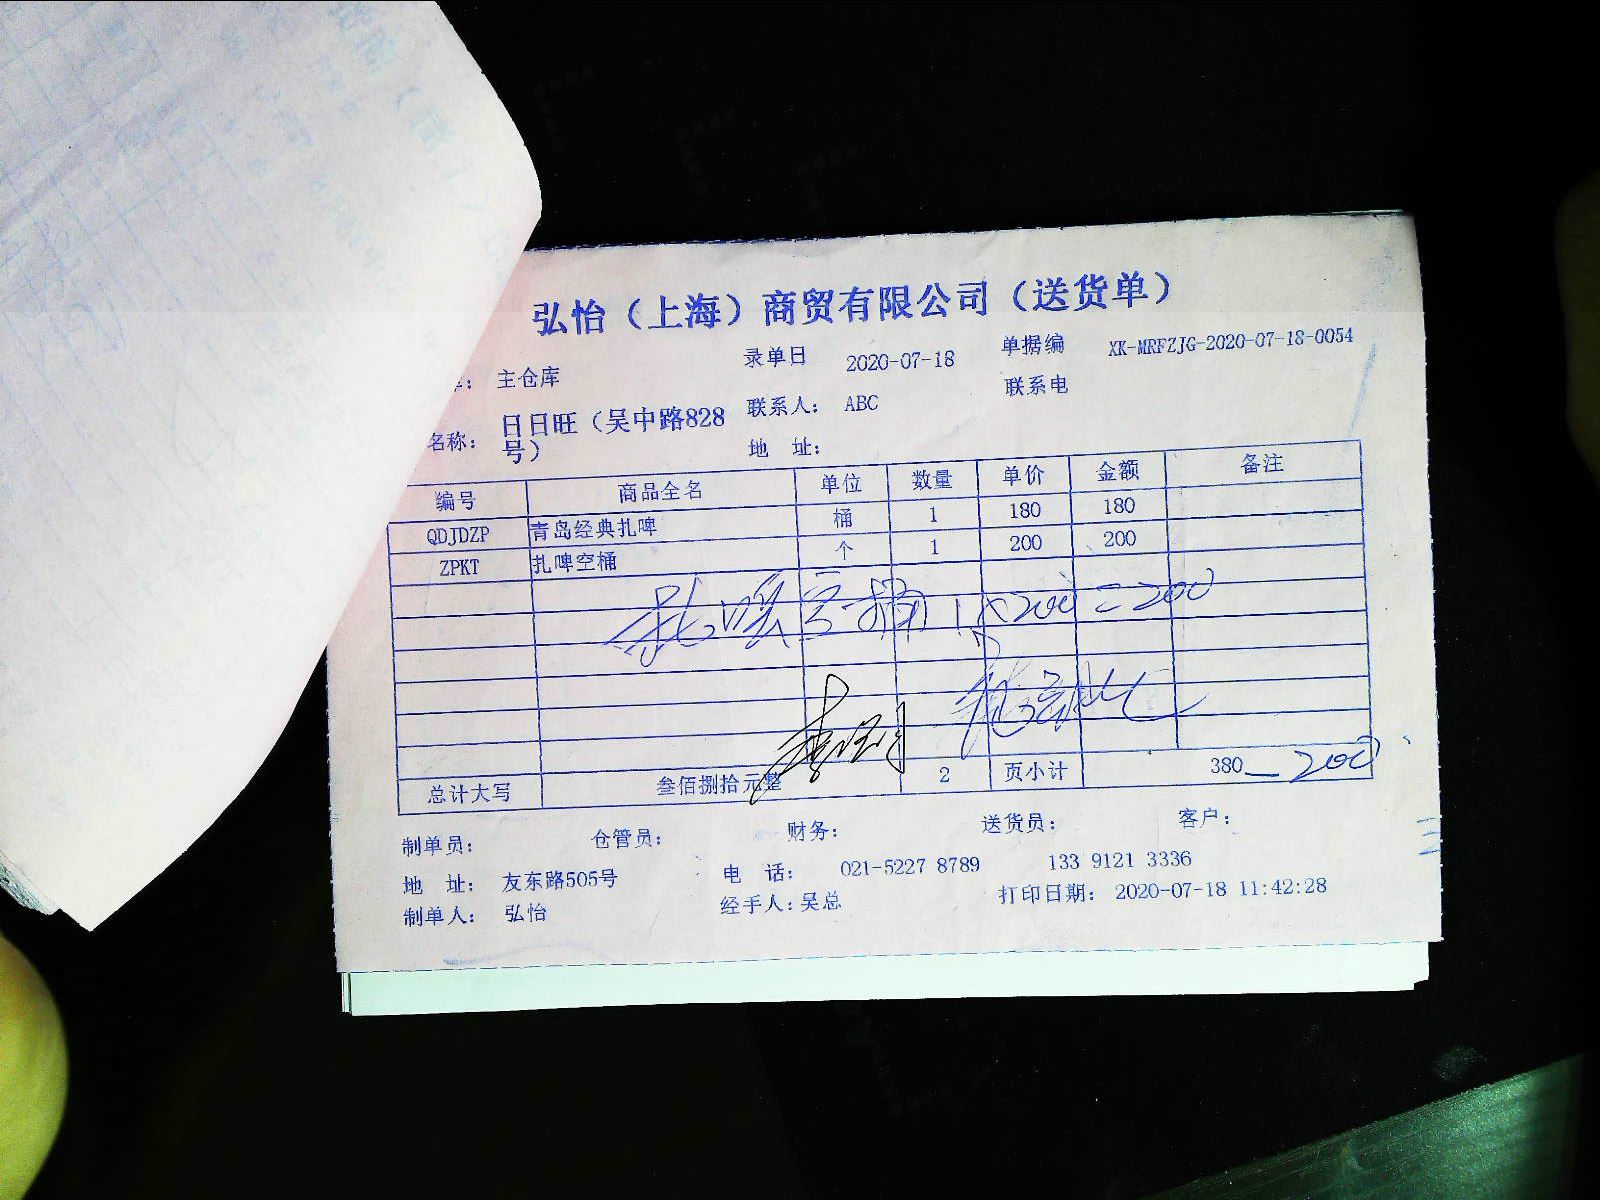 弘怡（上海）商贸有限公司（送货单）
主仓库 录单日 2020-07-18 单据编 XK-MRFZJG-2020-07-18-0054
名称： 日日旺（吴中路828号） 联系人： ABC 联系电
地 址：
编号 商品全名 单位 数量 单价 金额 备注
QDJDZP 青岛经典扎啤 桶 1 180 180
ZPKT 扎啤空桶 个 1 200 200
空桶 1×200=200
总计大写 叁佰捌拾元整 2 页小计 380 — 200
制单员： 仓管员： 财务： 送货员： 客户：
地 址： 友东路505号 电 话： 021-5227 8789 133 9121 3336
制单人： 弘怡 经手人：吴总 打印日期： 2020-07-18 11:42:28